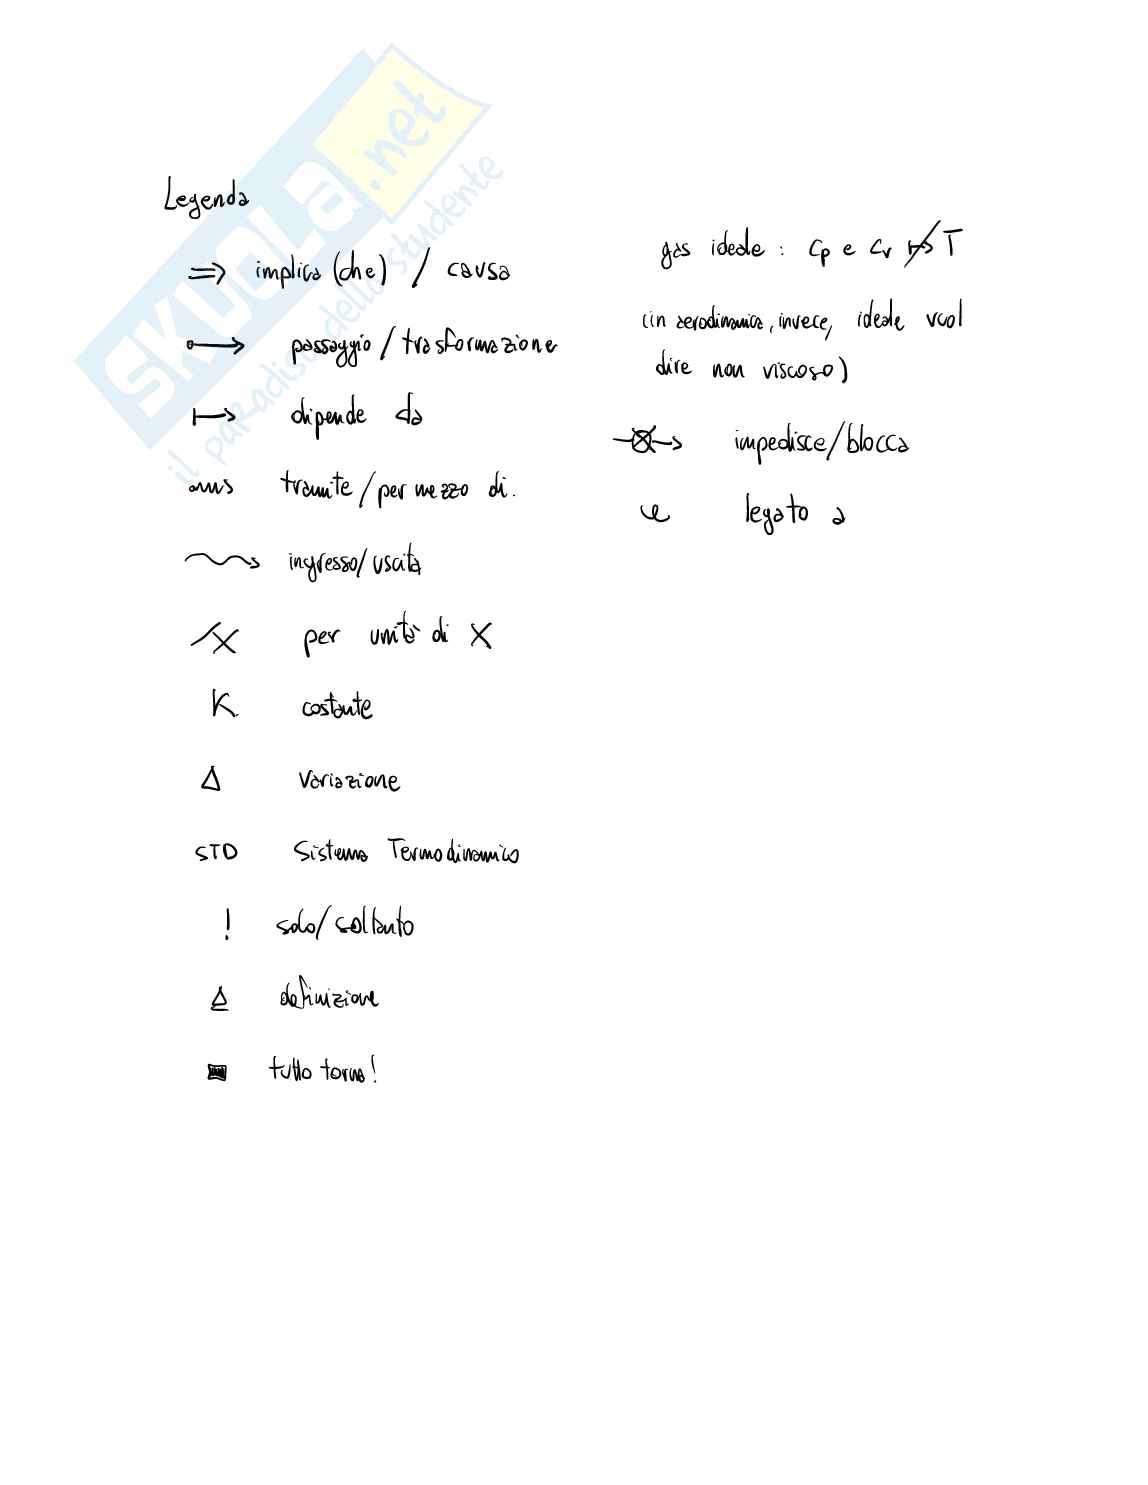 SKUOLA.net
il paradiso dello studente
Legenda
⇒ implica (che) / causa
o→ passaggio / trasformazione
↦ dipende da
tramite / per mezzo di.
ingresso / uscita
/X per unità di X
K costante
Δ variazione
STD Sistema Termodinamico
! solo / soltanto
≙ definizione
■ tutto torna!
gas ideale : Cp e Cv ↦̸ T
(in aerodinamica, invece, ideale vuol
dire non viscoso)
impedisce / blocca
legato a